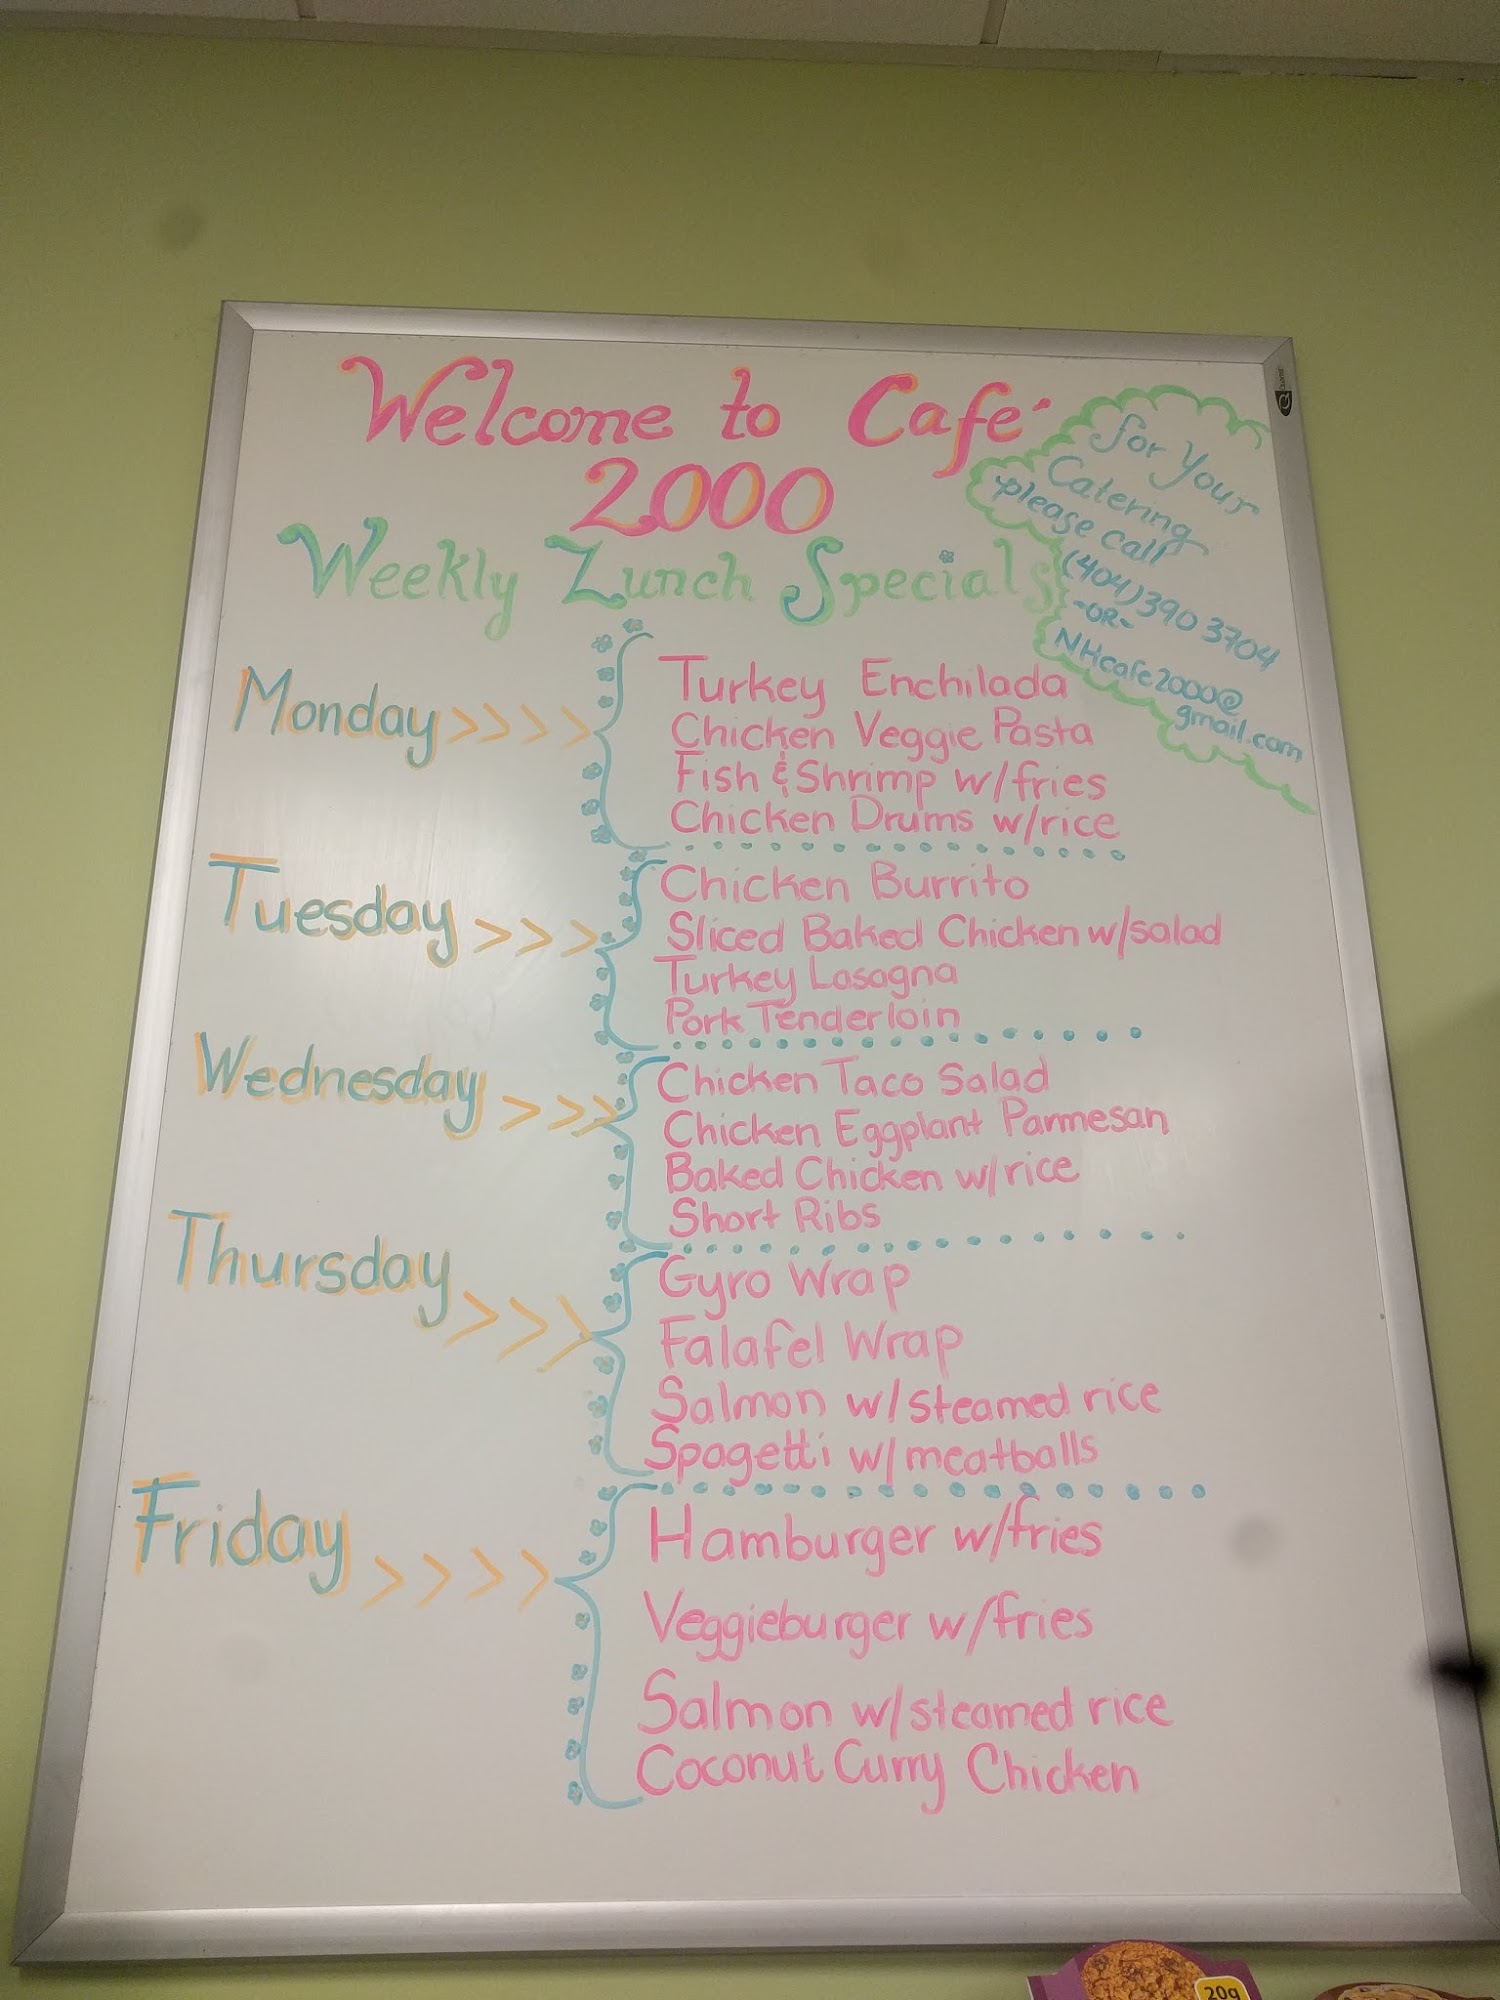 Welcome to Café
2000
Weekly Lunch Specials
for Your
Catering
please call
(404) 390 3704
-OR-
NHcafe2000@
gmail.com
Monday >>>>
Turkey Enchilada
Chicken Veggie Pasta
Fish & Shrimp w/fries
Chicken Drums w/rice
Tuesday >>>
Chicken Burrito
Sliced Baked Chicken w/salad
Turkey Lasagna
Pork Tenderloin
Wednesday >>>
Chicken Taco Salad
Chicken Eggplant Parmesan
Baked Chicken w/rice
Short Ribs
Thursday >>>
Gyro Wrap
Falafel Wrap
Salmon w/steamed rice
Spagetti w/meatballs
Friday >>>>
Hamburger w/fries
Veggieburger w/fries
Salmon w/steamed rice
Coconut Curry Chicken
20g